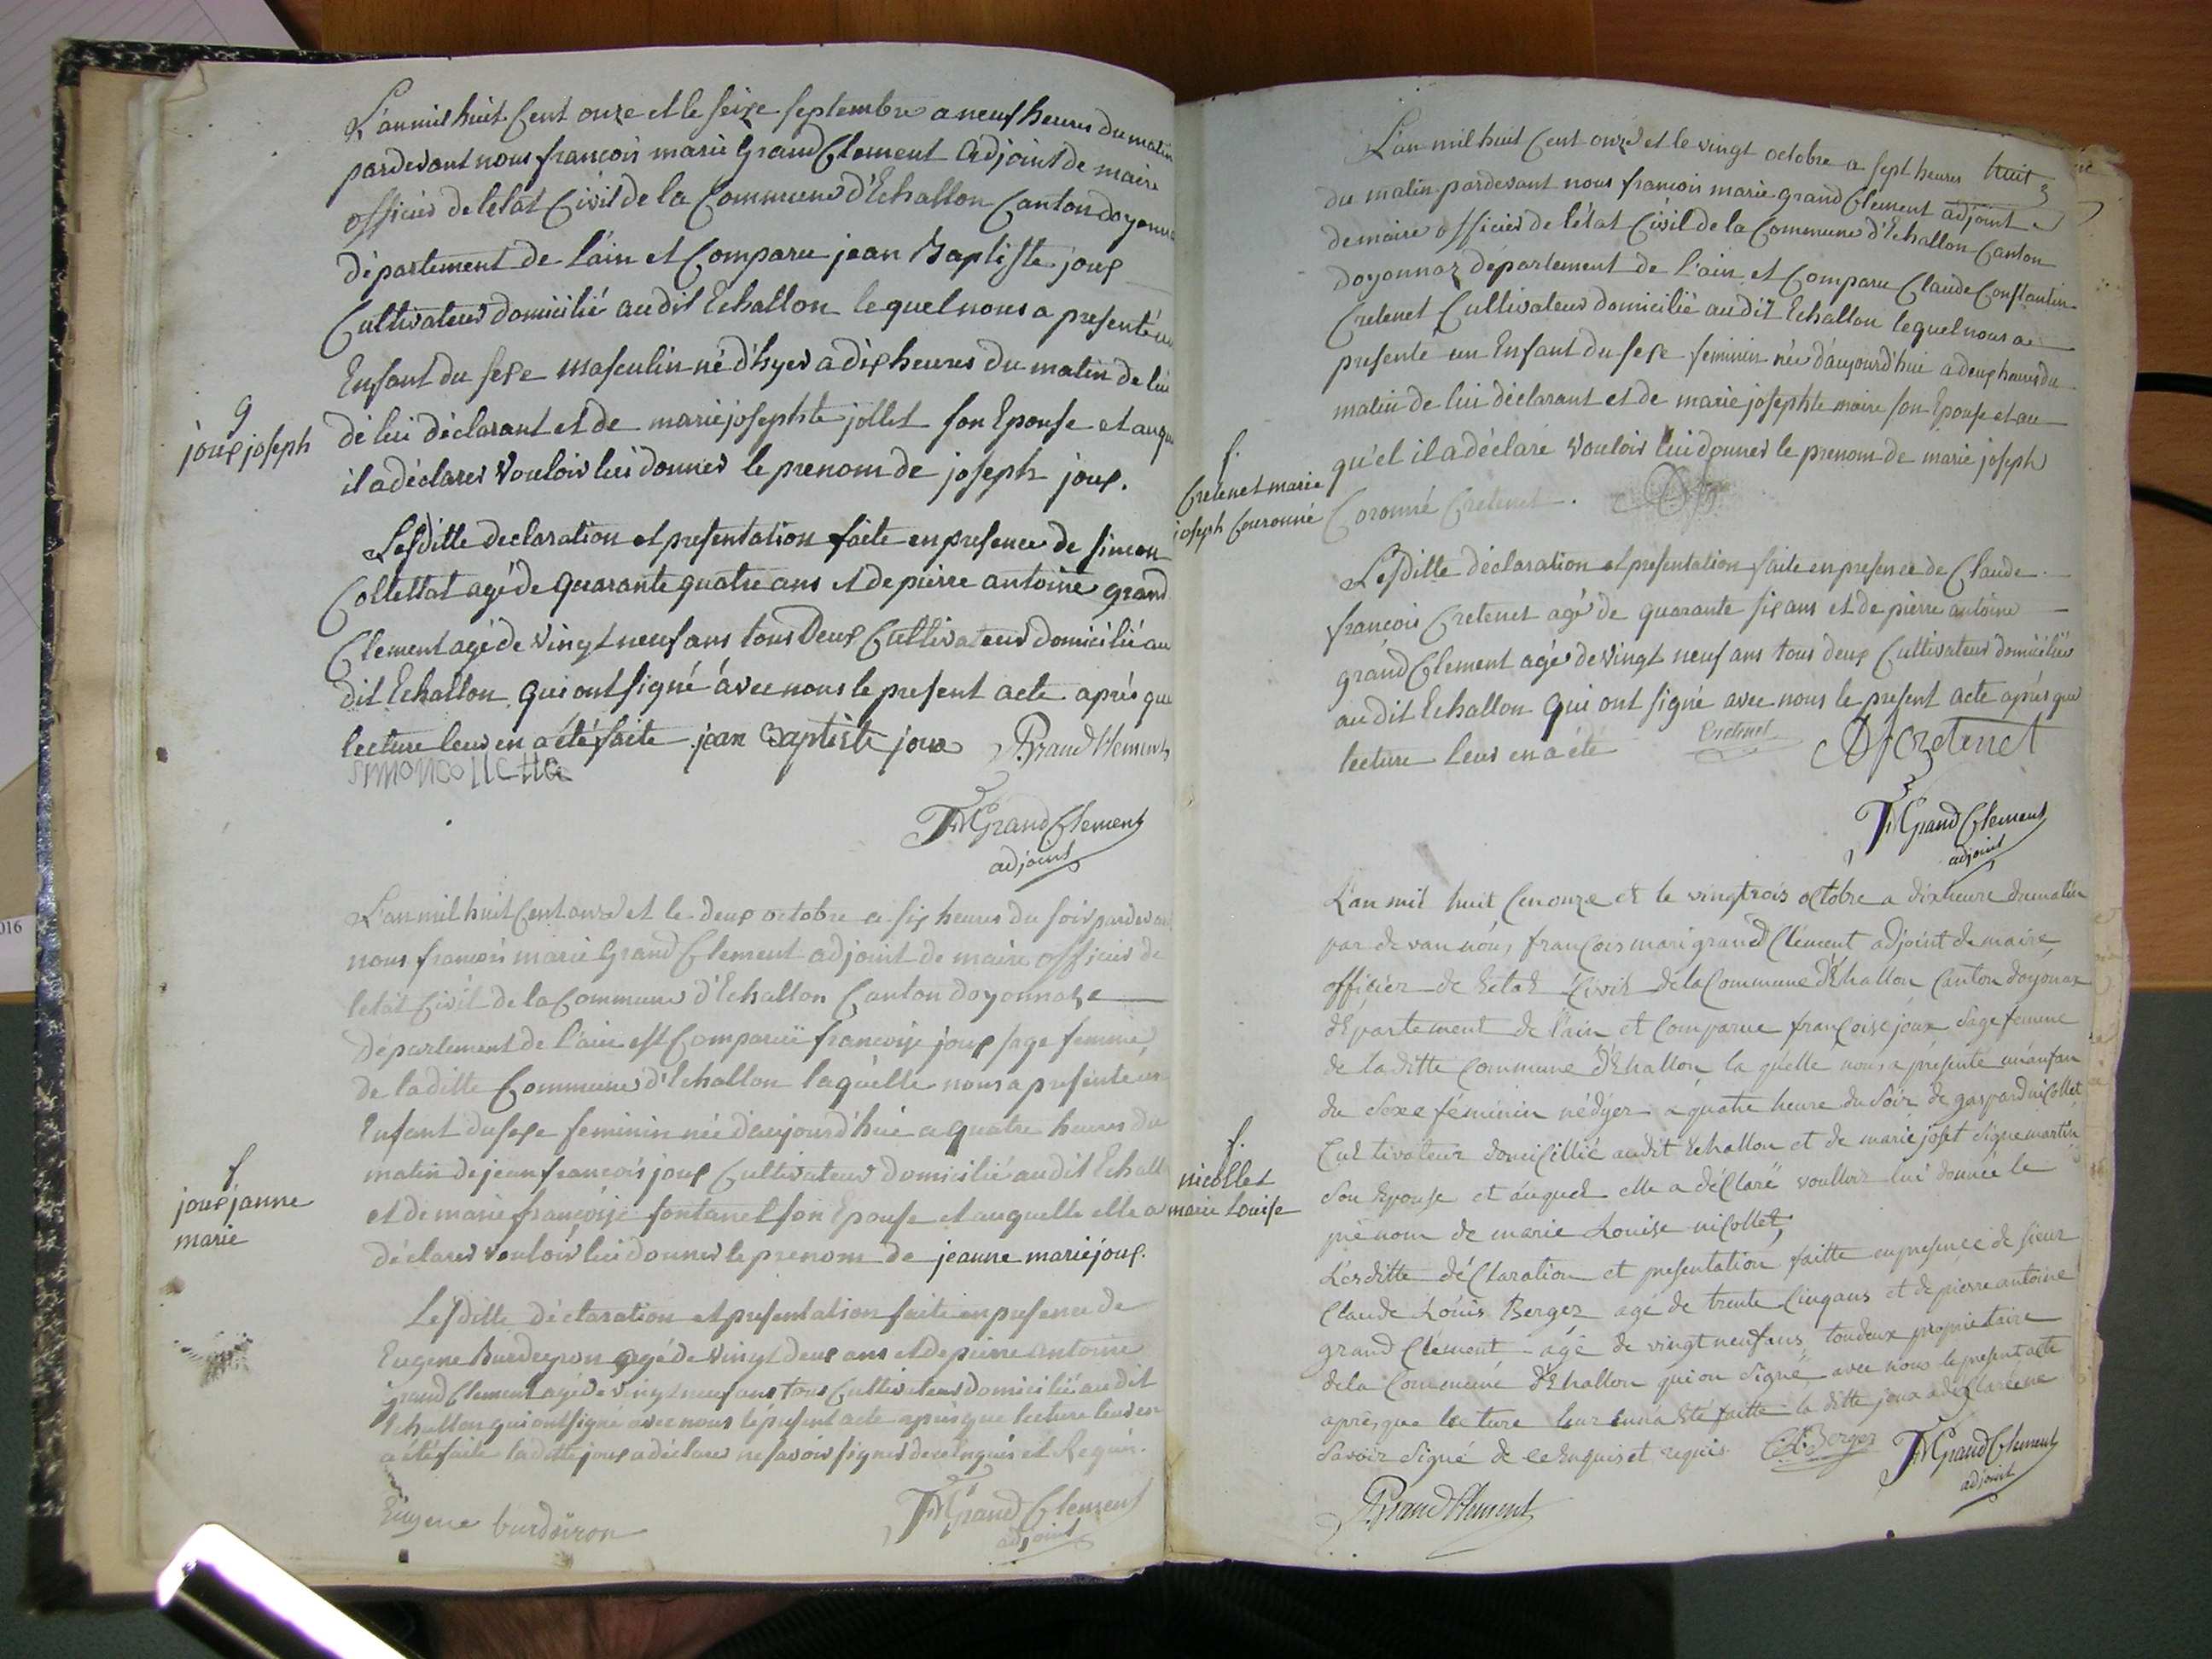 L'an mil huit Cent onze et le seize septembre a neuf heures du matin
pardevant nous francois marie Grand Clement Adjoint de maire
officier de l'état Civil de la Commune d'Echallon Canton doyonna
département de l'ain et Comparu jean Baptiste joux
Cultivateur domicilié audit Echallon lequel nous a presenté un
Enfant du sexe masculin né d'hyer a dix heures du matin de lui
de lui déclarant et de marie josephte jollet son Epouse et auqu
il a déclarer vouloir lui donner le prenom de joseph joux.
g
joux joseph
Lesditte declaration et presentation faite en presence de simeon
Collettat agé de quarante quatre ans et de pierre antoine grand
Clement agé de vingt neuf ans tous deux Cultivateur domicilié au
dit Echallon qui ont signé avec nous le present acte après que
lecture leur en a été faite jean Baptiste joux P. Grand Clement
simon colletta
FM Grand Clement
adjoint
L'an mil huit Cent onze et le deux octobre a six heures du soir pardevan
nous francois marie Grand Clement adjoint de maire officier de
letat Civil de la Commune d'Echallon Canton doyonnaxe
département de l'ain est Comparue francoise joux sage femme
de laditte Commune d'Echallon laquelle nous a presente un
Enfant du sexe feminin née d'aujourd'hui a quatre heures du
matin de jean francois joux Cultivateur domicilié audit Echall
et de marie francoise fontanel son Epouse et auquelle elle a
déclarer vouloir lui donner le prenom de jeanne marie joux.
f
joux janne
marie
Lesditte déclaration et presentation faite en presence de
Eugene Burdeyron agé de vingt deux ans et de pierre antoine
grand Clement agé de vingt neuf ans tous Cultivateur domicilié audit
Echallon qui ont signé avec nous le present acte après que lecture leur en
a été faite laditte joux a déclarer ne savoir signer de ce enquis et Requis.
Eugene burdeiron
FM Grand Clement
adjoint
L'an mil huit Cent onze et le vingt octobre a sept heures huit
du matin pardevant nous francois marie grand Clement adjoint
de maire officier de l'état Civil de la Commune d'Echallon Canton
doyonnaz département de l'ain et Comparu Claude Constantin
Cretenet Cultivateur domicilié audit Echallon lequel nous a
presenté un Enfant du sexe feminin née d'aujourd'hui a deux heures du
matin de lui déclarant et de marie josephte maire son Epouse et au
qu'el il a déclaré vouloir lui donner le prenom de marie joseph
Coronné Cretenet.
f.
Cretenet marie
joseph Couronné
Lesditte déclaration et presentation faite en presence de Claude
francois Cretenet agé de quarante six ans et de pierre antoine
grand Clement agé de vingt neuf ans tous deux Cultivateur domiciliés
audit Echallon qui ont signé avec nous le present acte après que
lecture leur en a été Cretenet Cf cretenet
FM Grand Clement
adjoint
L'an mil huit Cen onze et le vingtrois octobre a dix heure du matin
par de van nous, francois mari grand Clément adjoint de maire
officier de l'etat Civil de la Commune d'Echallon Canton doyonax
département de l'ain et Comparue françoise joux sage femme
de laditte Commune d'Echallon la quelle nous a présente un anfan
du Sexe féminin né dyer a quatre heure du Soir de gaspard nicollet
Cultivateur domicillié audit Echallon et de marie joset signemartin
Son Epouse et auquel elle a déClaré voulloir lui donnée le
prénom de marie Louise nicollet,
f.
nicollet
marie Louise
Lesditte déClaration et presentation faitte en presence de sieur
Claude Louis Berger age de trente Cinq ans et de pierre antoine
grand Clement agé de vingt neuf ans, toudeux proprietaire
dela Commune d'Echallon qui on Signé avec nous le present acte
après que lecture leur en na été faitte la ditte joux a déClaré ne
Savoir Signé de ce Enquis et requis. C. L. Berger FM Grand Clement
adjoint
P. Grand Clement